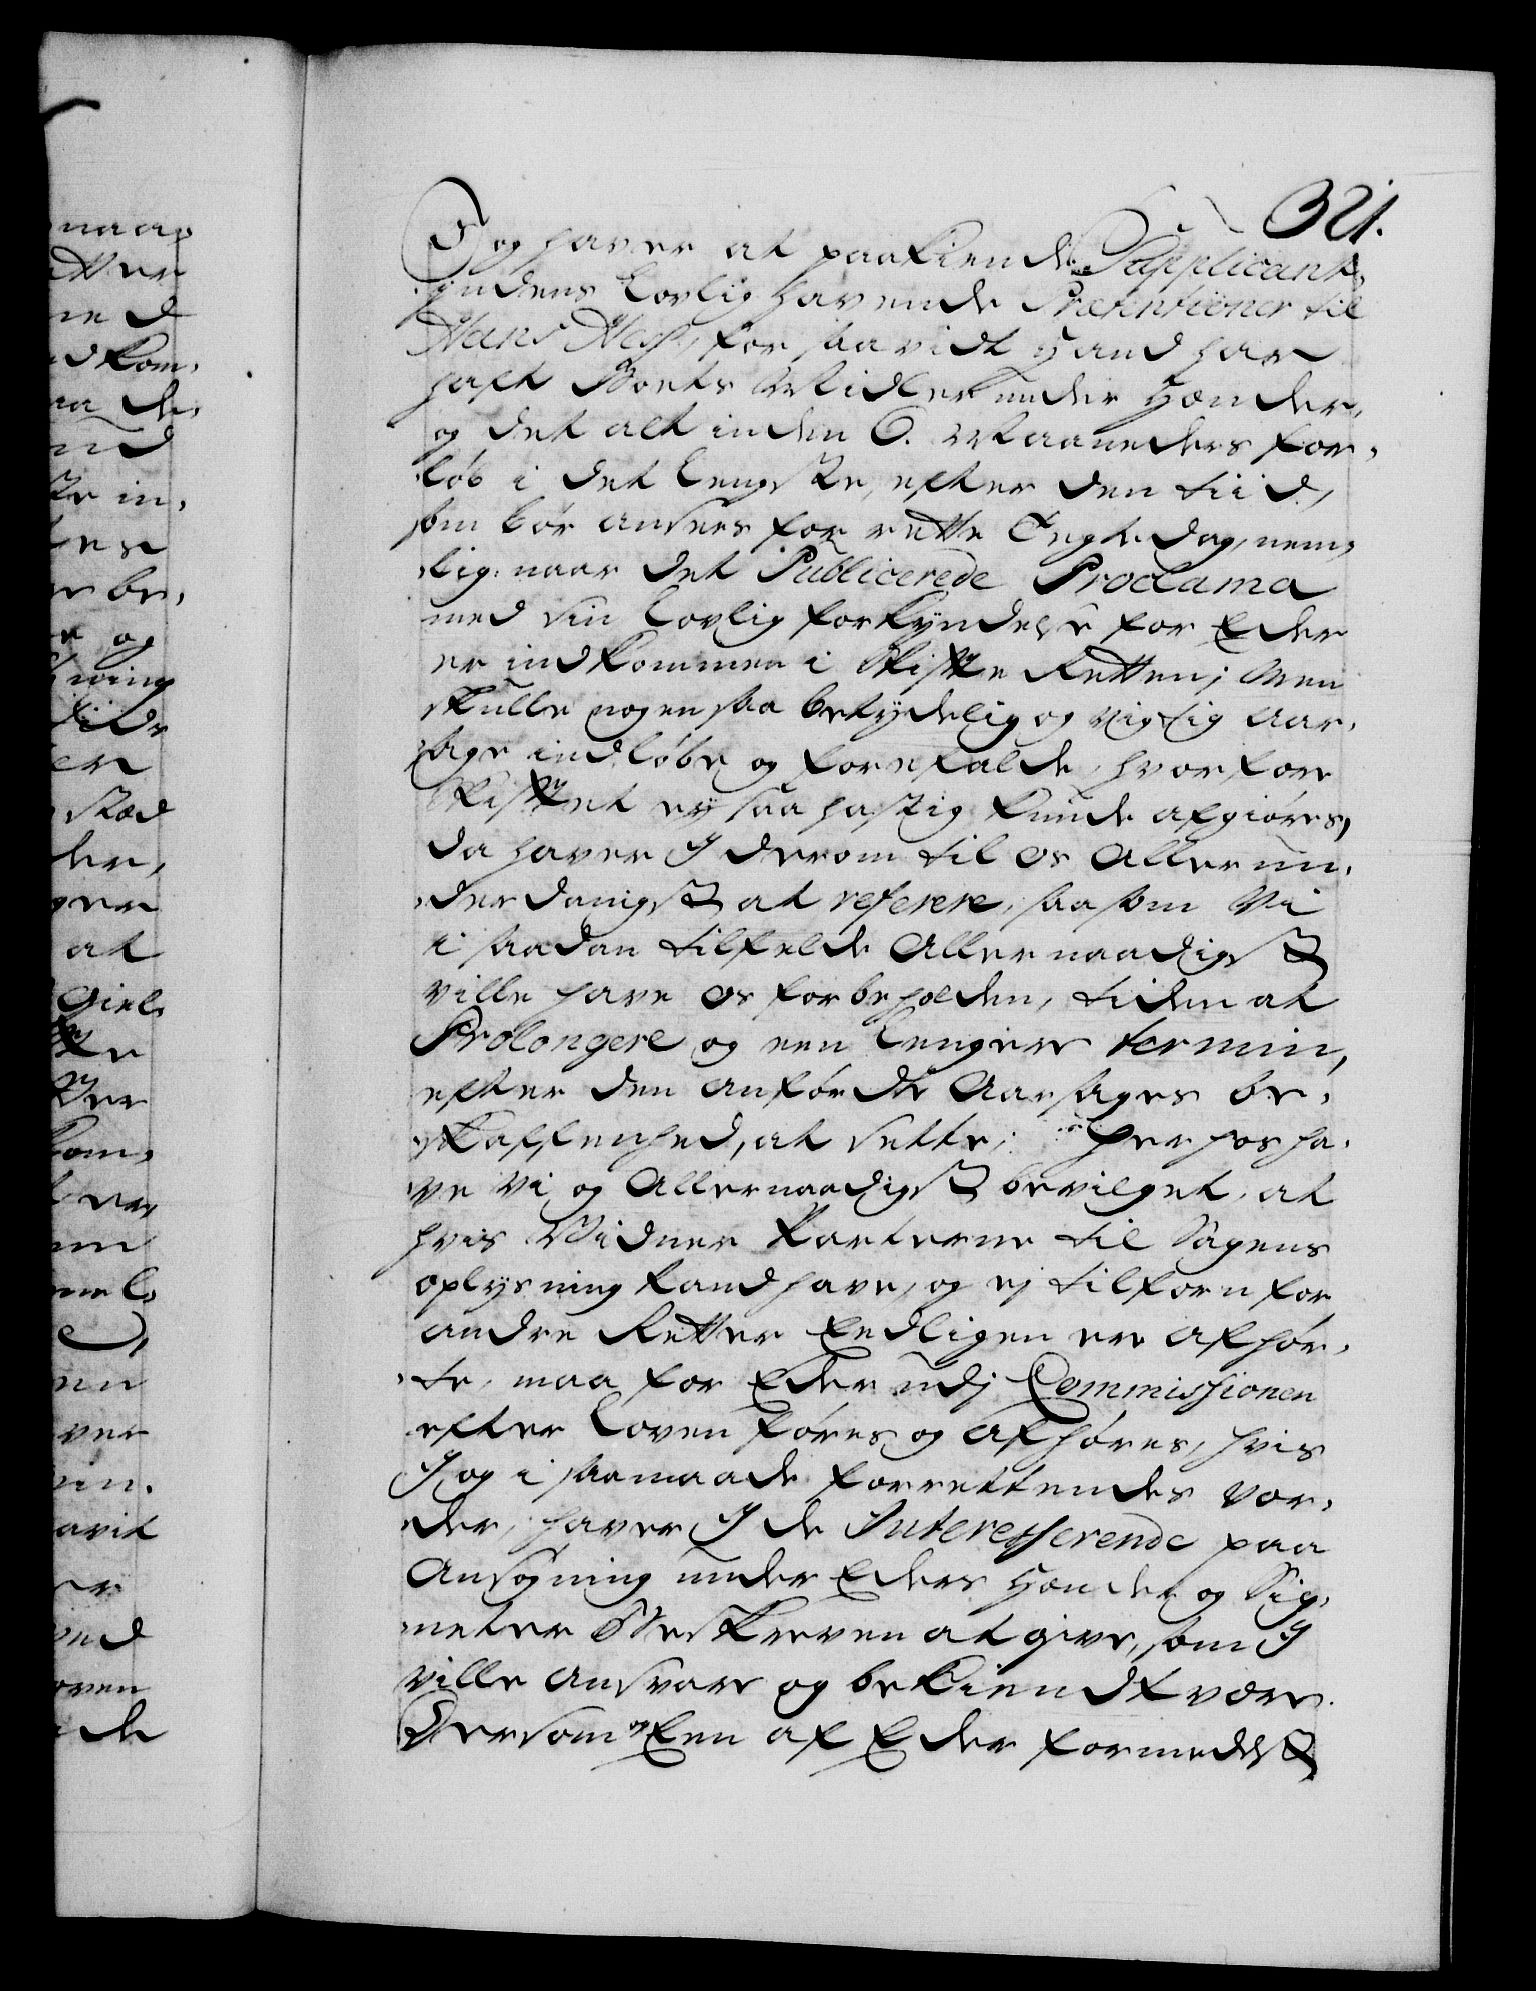 321.
I og haver at paakiende Supplicant-
indens lovlig havende Prætentioner til
Hans Moss, for saavidt hand har
haft Boets Midler under Hænder,
og det alt inden 6. Maaneders for-
løb i det lengste, efter den tiid,
som bør ansees for rette Tegte dag, nem-
lig: naar det Publicerede Proclama
med sin lovlig forkyndelse for Eder
er indkommen i Skiffte Retten; Men
skulle nogen saa betydelig og vigtig Aar-
sage indløbe og forefalde, hvorfore
Skifftet ey saa hastig kunde afgiøres,
da haver I derom til os Allerun-
derdanigst at referere, saasom Vi
i saadan tilfelde Allernaadigst
ville have os forbeholden, tiden at
Prolongere og een lengere termin,
efter den anførde Aarsages be-
skaffenhed, at sette; Herhos ha-
ve Vi og Allernaadigst bevilget, at
hvis Vidner Parterne til Sagens
oplysning kand have, og ej tilforn for
andre Retter Endeligen ere afhør-
te, maa for Eder udj Commissionen
efter Loven føres og afhøres, hvis
I og i saamaade forrettendes vor-
der, haver I de Interesserende paa
Ansøgning under Eders Hænder og Sig-
neter Beskreven at give, som I
ville ansvare og bekiendt være.
Dersom og Een af Eder formedelst
naar
med
at
ved